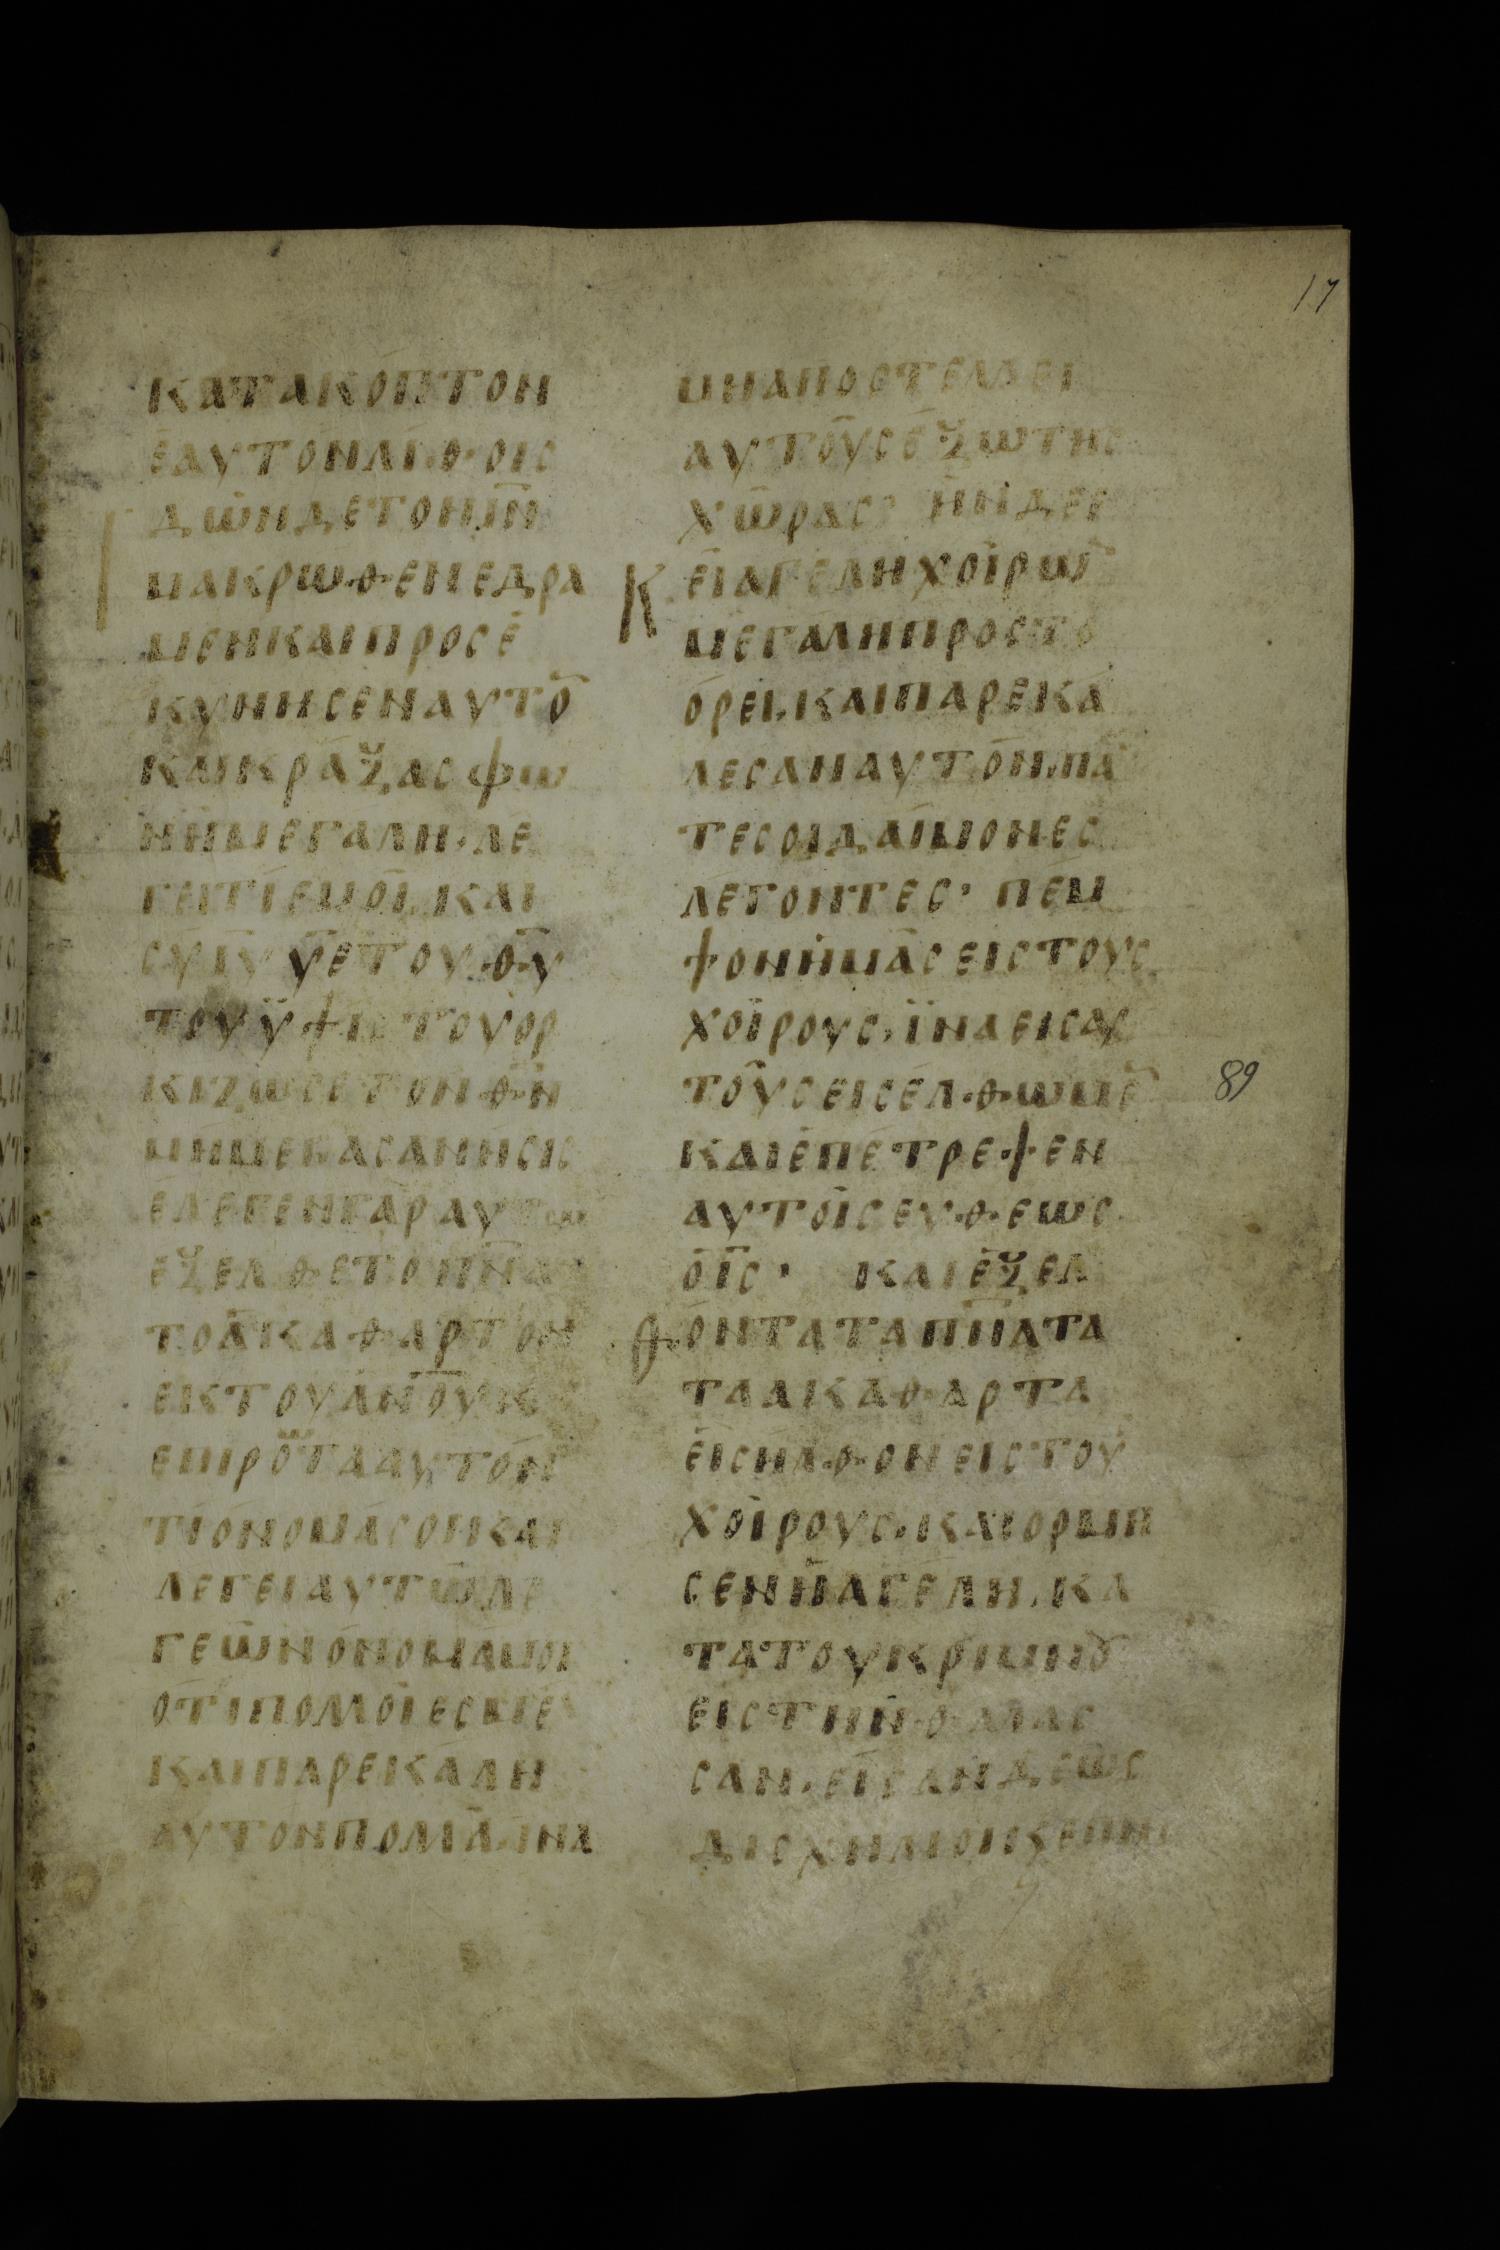 17
ΚΑΤΑΚΟΠΤΟΝ
ἑΑΥΤΟΝΛΙΘΟΙΣ
ΔῶΝΔΕΤΟΝΙ̅Ν̅
ΜΑΚΡΩΘΕΝΕΔΡΑ
ΜΕΝΚΑΙΠΡΟΣΕ
ΚΥΝΗΣΕΝΑΥΤΟ̅
ΚΑΙΚΡΑΞΑΣΦΩ
ΝΗΜΕΓΑΛΗ·ΛΕ
ΓΕΙΤΙΕΜΟΙ,ΚΑΙ
ΣΥΙ̅Υ̅Υ̅Ε̅ΤΟΥΘ̅Υ̅
ΤΟΥΫΨΙΣΤΟΥὁΡ
ΚΙΖΩΣΕΤΟΝΘ̅Ν̅
ΜΗΜΕΒΑΣΑΝΗΣΙΣ
ΕΛΕΓΕΝΓΑΡΑΥΤΩ
ΕΞΕΛΘΕΤΟΠ̅Ν̅Α̅
ΤΟΑΚΑΘΑΡΤΟΝ
ΕΚΤΟΥΑ̅Ν̅Ο̅Υ̅Κ
ΕΠΙΡΟΤΑΑΥΤΟΝ
ΤΙΟΝΟΜΑΣΟΙΚΑΙ
ΛΕΓΕΙΑΥΤῶΛΕ
ΓΕῶΝΟΝΟΜΑΜΟΙ
ΟΤΙΠΟΛΛΟΙΕΣΜΕ
ΚΑΙΠΑΡΕΚΑΛΗ
ΑΥΤΟΝΠΟΛΛΑ,ΙΝΑ
ΜΗΑΠΟΣΤΕΛΛΕΙ
ΑΥΤΟῦΣΕΞΩΤΗΣ
ΧῶΡΑΣ· ΗΝΔΕΕ
ΚΕΙΑΓΕΛΗΧΟΙΡΩ̅
ΜΕΓΑΛΗΠΡΟΣΤΟ
ΟΡΕΙ,ΚΑΙΠΑΡΕΚΑ
ΛΕΣΑΝΑΥΤΟΝ,ΠΑ̅
ΤΕΣΟΙΔΑΙΜΟΝΕΣ
ΛΕΓΟΝΤΕΣ· ΠΕΜ
ΨΟΝΗΜΑΣΕΙΣΤΟΥΣ
ΧΟΙΡΟΥΣ,ΪΝΑΕΙΣΑΥ
ΤΟῦΣΕΙΣΕΛΘΩΜΕ̅
89
ΚΑΙΕΠΕΤΡΕΨΕΝ
ΑΥΤΟΙΣΕΥΘΕΩΣ
ὁΙ̅Σ̅· ΚΑΙΕΞΕΛ
ΘΟΝΤΑΤΑΠ̅Ν̅ΑΤΑ
ΤΑΑΚΑΘΑΡΤΑ
ΕΙΣΗΛΘΟΝΕΙΣΤΟΥ
ΧΟΙΡΟΥΣ,ΚΑΙΟΡΜΗ
ΣΕΝΗΑΓΕΛΗ,ΚΑ
ΤΑΤΟΥΚΡΗΜΝȢ
ΕΙΣΤΗΝΘΑΛΑΣ
ΣΑΝ·ΕΙΣΑΝΔΕΩΣ
ΔΙΣΧΗΛΙΟΙ